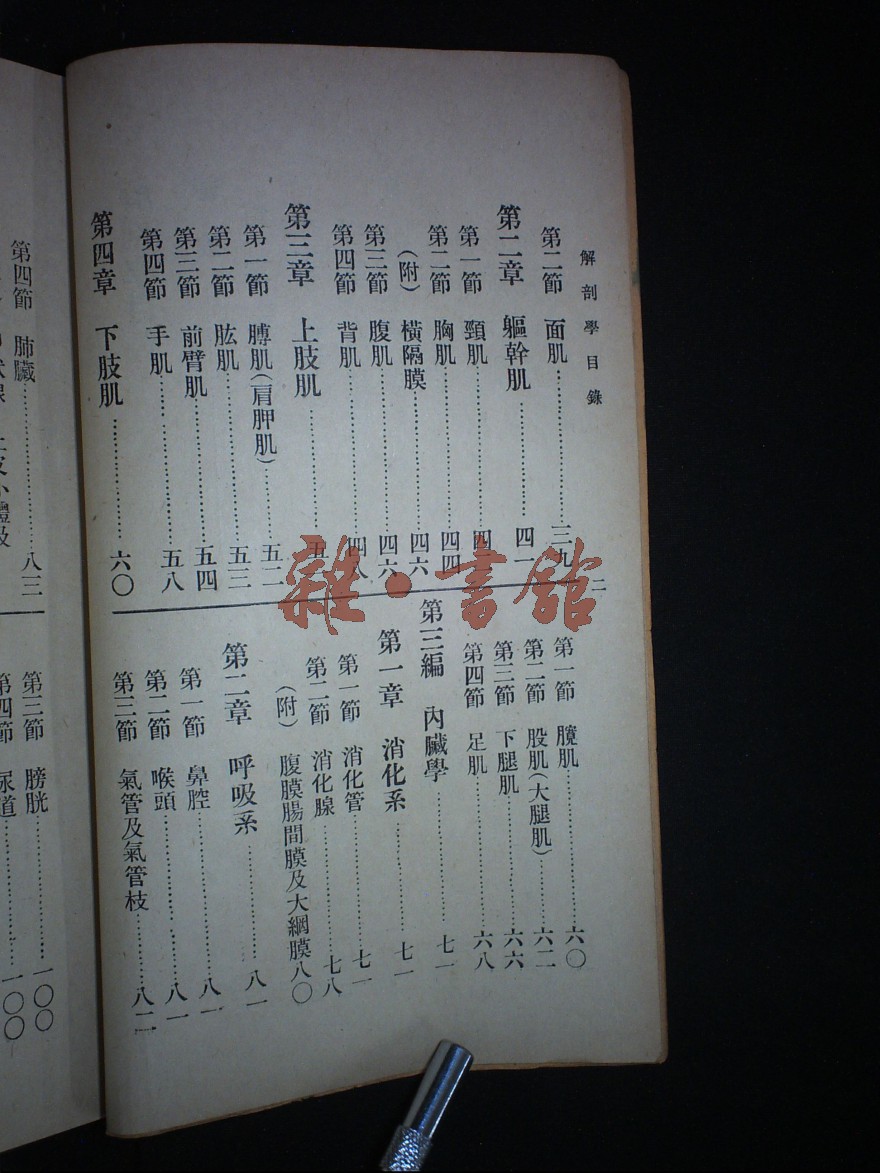 解剖學目錄
二
第二節 面肌……三九
第二章 軀幹肌……四一
第一節 頸肌……四一
第二節 胸肌……四四
(附) 橫隔膜……四六
第三節 腹肌……四六
第四節 背肌……四八
第三章 上肢肌……五
第一節 膊肌(肩胛肌)……五二
第二節 肱肌……五三
第三節 前臂肌……五四
第四節 手肌……五八
第四章 下肢肌……六〇
第一節 臗肌……六〇
第二節 股肌(大腿肌)……六二
第三節 下腿肌……六六
第四節 足肌……六八
第三編 內臟學……七一
第一章 消化系……七一
第一節 消化管……七一
第二節 消化腺……七八
(附) 腹膜腸間膜及大網膜八〇
第二章 呼吸系……八一
第一節 鼻腔……八一
第二節 喉頭……八一
第三節 氣管及氣管枝……八二
第四節 肺臟……八三
第三節 膀胱……一〇〇
第四節 尿道……一〇〇
雜·書館